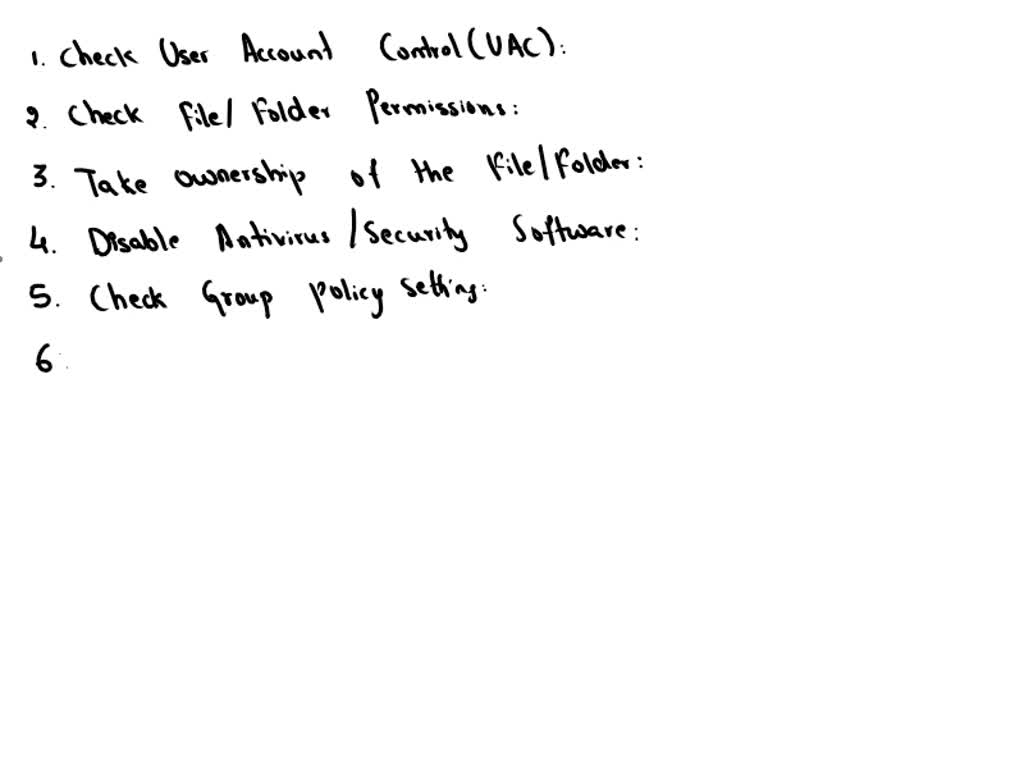 1. Check User Account Control (UAC):
2. Check File/Folder Permissions:
3. Take ownership of the File/Folder:
4. Disable Antivirus/Security Software:
5. Check Group policy setting:
6.